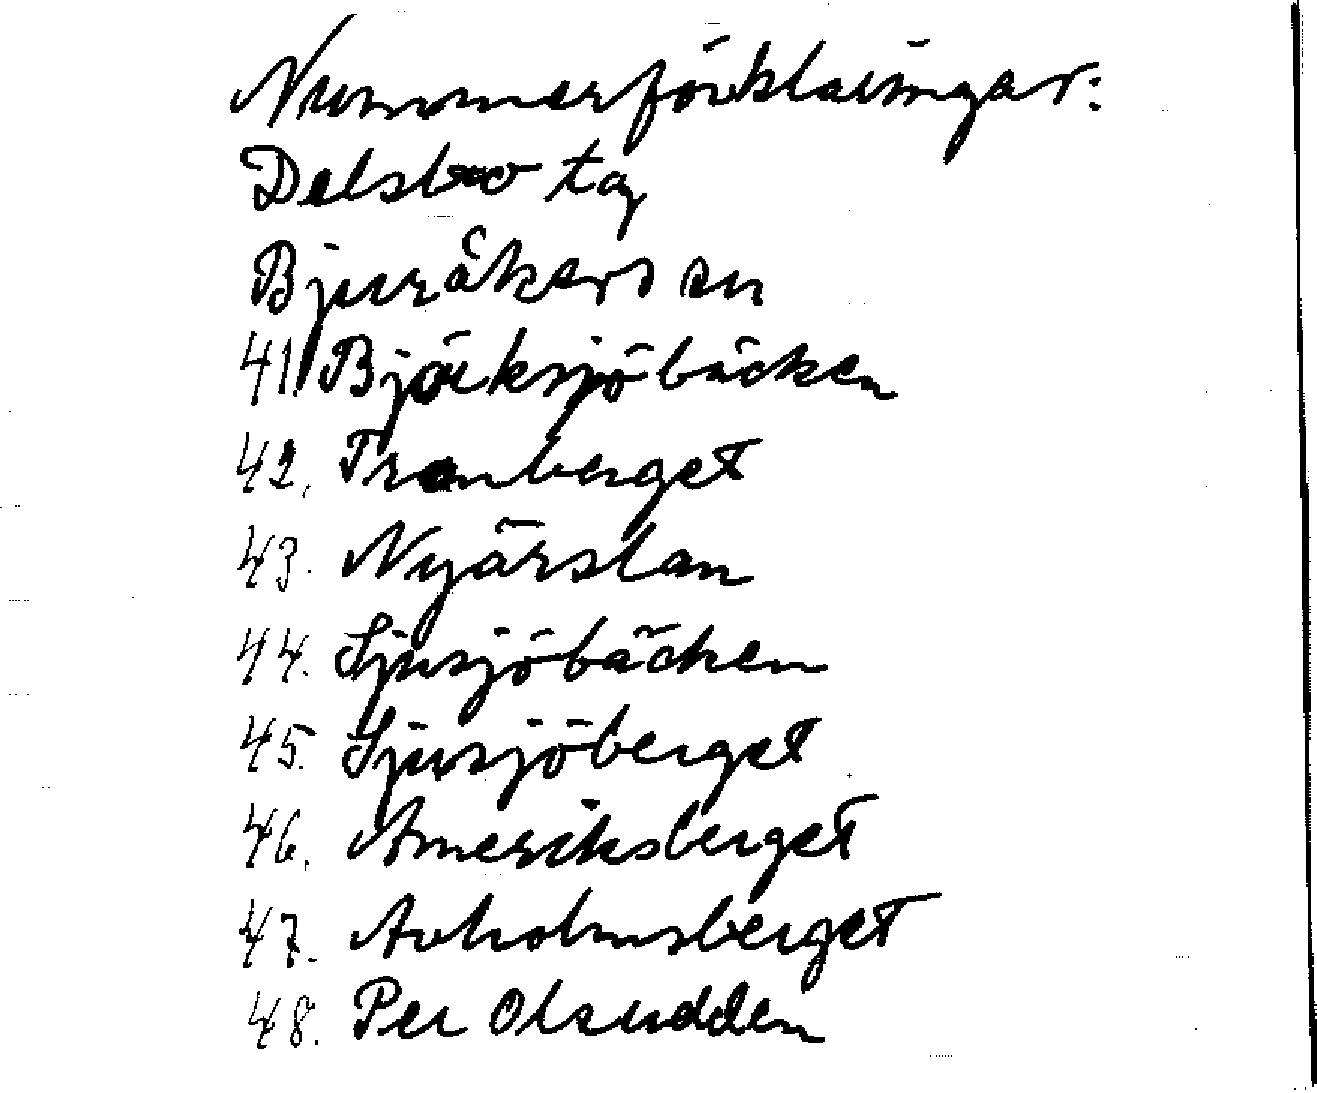 Nummerförklaringar:
Delsbo tg
Bjuråkers sn
41. Björksjöbäcken
42. Tranberget
43. Nyårslan
44. Sjusjöbäcken
45. Sjusjöberget
46. Ameriksberget
47. Avholmsberget
48. Per Olsudden